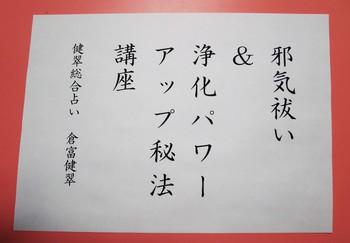 邪気祓い
&
浄化パワー
アップ秘法
講座
健翠総合占い　倉富健翠